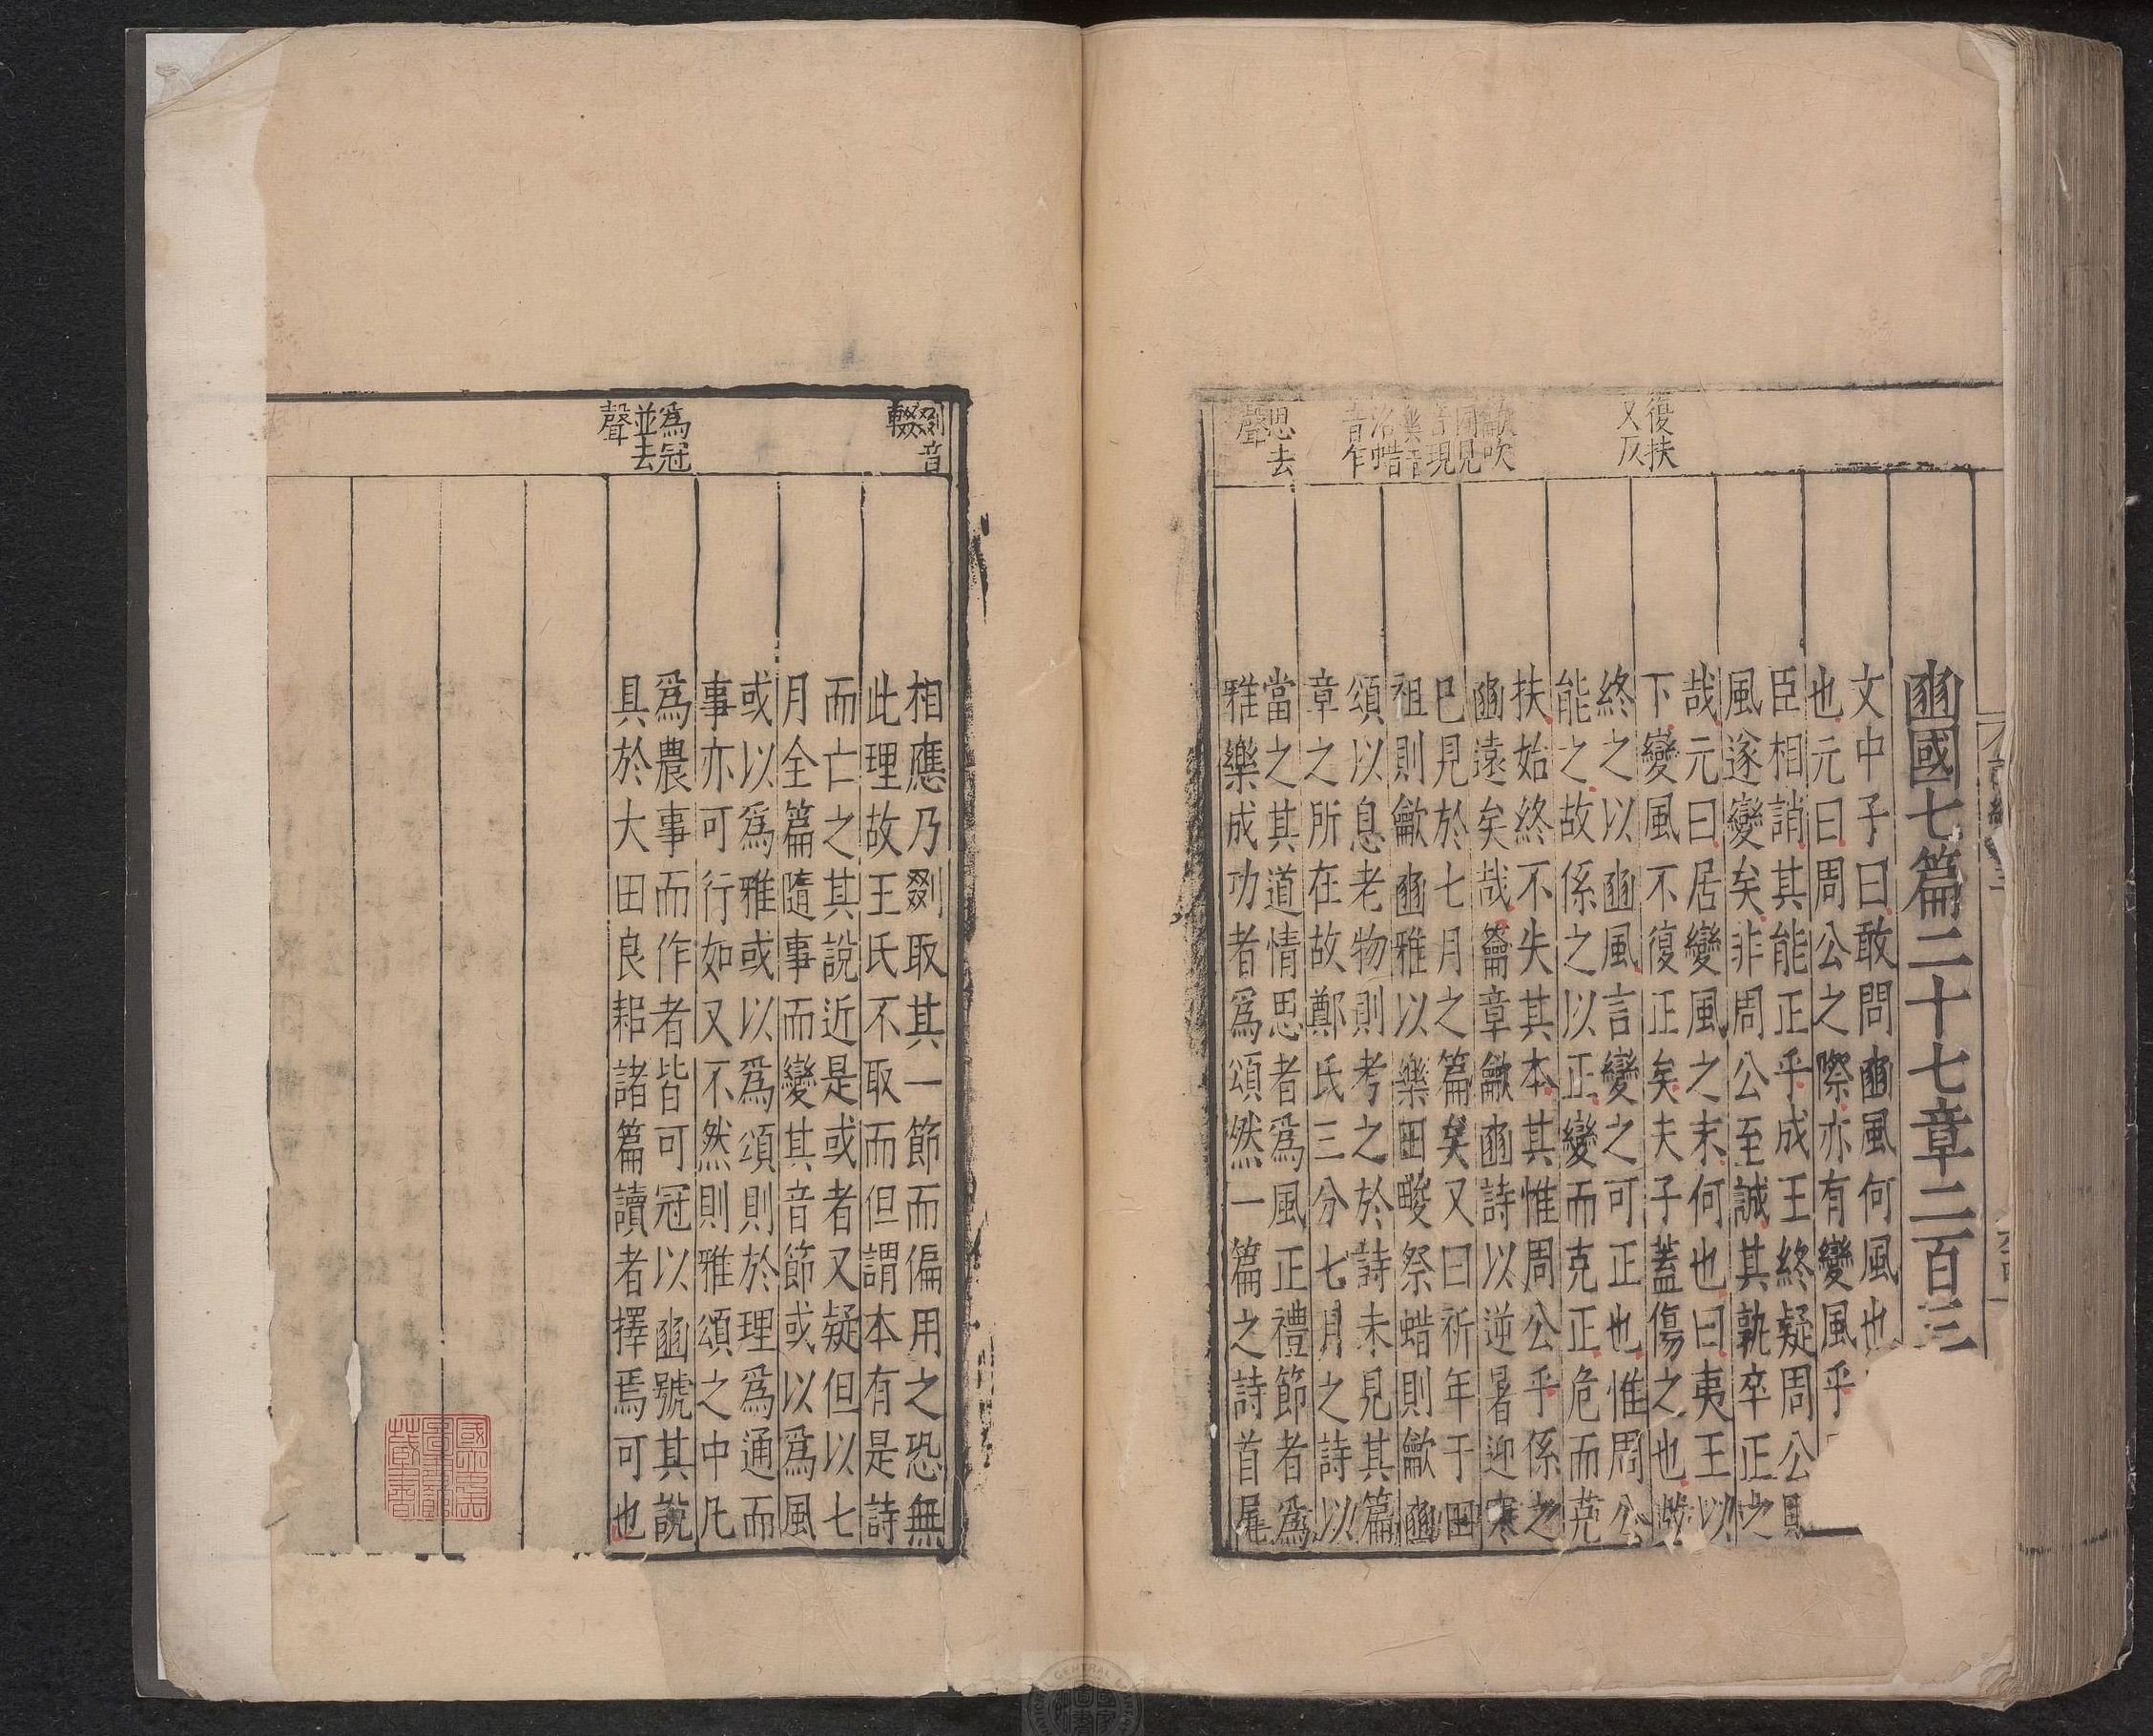 復扶
又反
龡吹
見
音現
樂音
洛蜡
音乍
思去
聲
豳國七篇二十七章二百三
文中子曰敢問豳風何風也
也元曰周公之際亦有變風乎
臣相誚其能正乎成王終疑周公則
風遂變矣非周公至誠其孰卒正之
哉元曰居變風之末何也曰夷王以
下變風不復正矣夫子蓋傷之也故
終之以豳風言變之可正也惟周公
能之故係之以正變而克正危而克
扶始終不失其本其惟周公乎係之
豳遠矣哉籥章龡豳詩以逆暑迎寒
已見於七月之篇矣又曰祈年于田
祖則龡豳雅以樂田畯祭蜡則龡豳
頌以息老物則考之於詩未見其篇
章之所在故鄭氏三分七月之詩以
當之其道情思者爲風正禮節者爲
雅樂成功者爲頌然一篇之詩首尾
剟音
輟
爲冠
並去
聲
相應乃剟取其一節而偏用之恐無
此理故王氏不取而但謂本有是詩
而亡之其說近是或者又疑但以七
月全篇隨事而變其音節或以爲風
或以爲雅或以爲頌則於理爲通而
事亦可行如又不然則雅頌之中凡
爲農事而作者皆可冠以豳號其說
具於大田良耜諸篇讀者擇焉可也
國立中
央圖書館
藏書